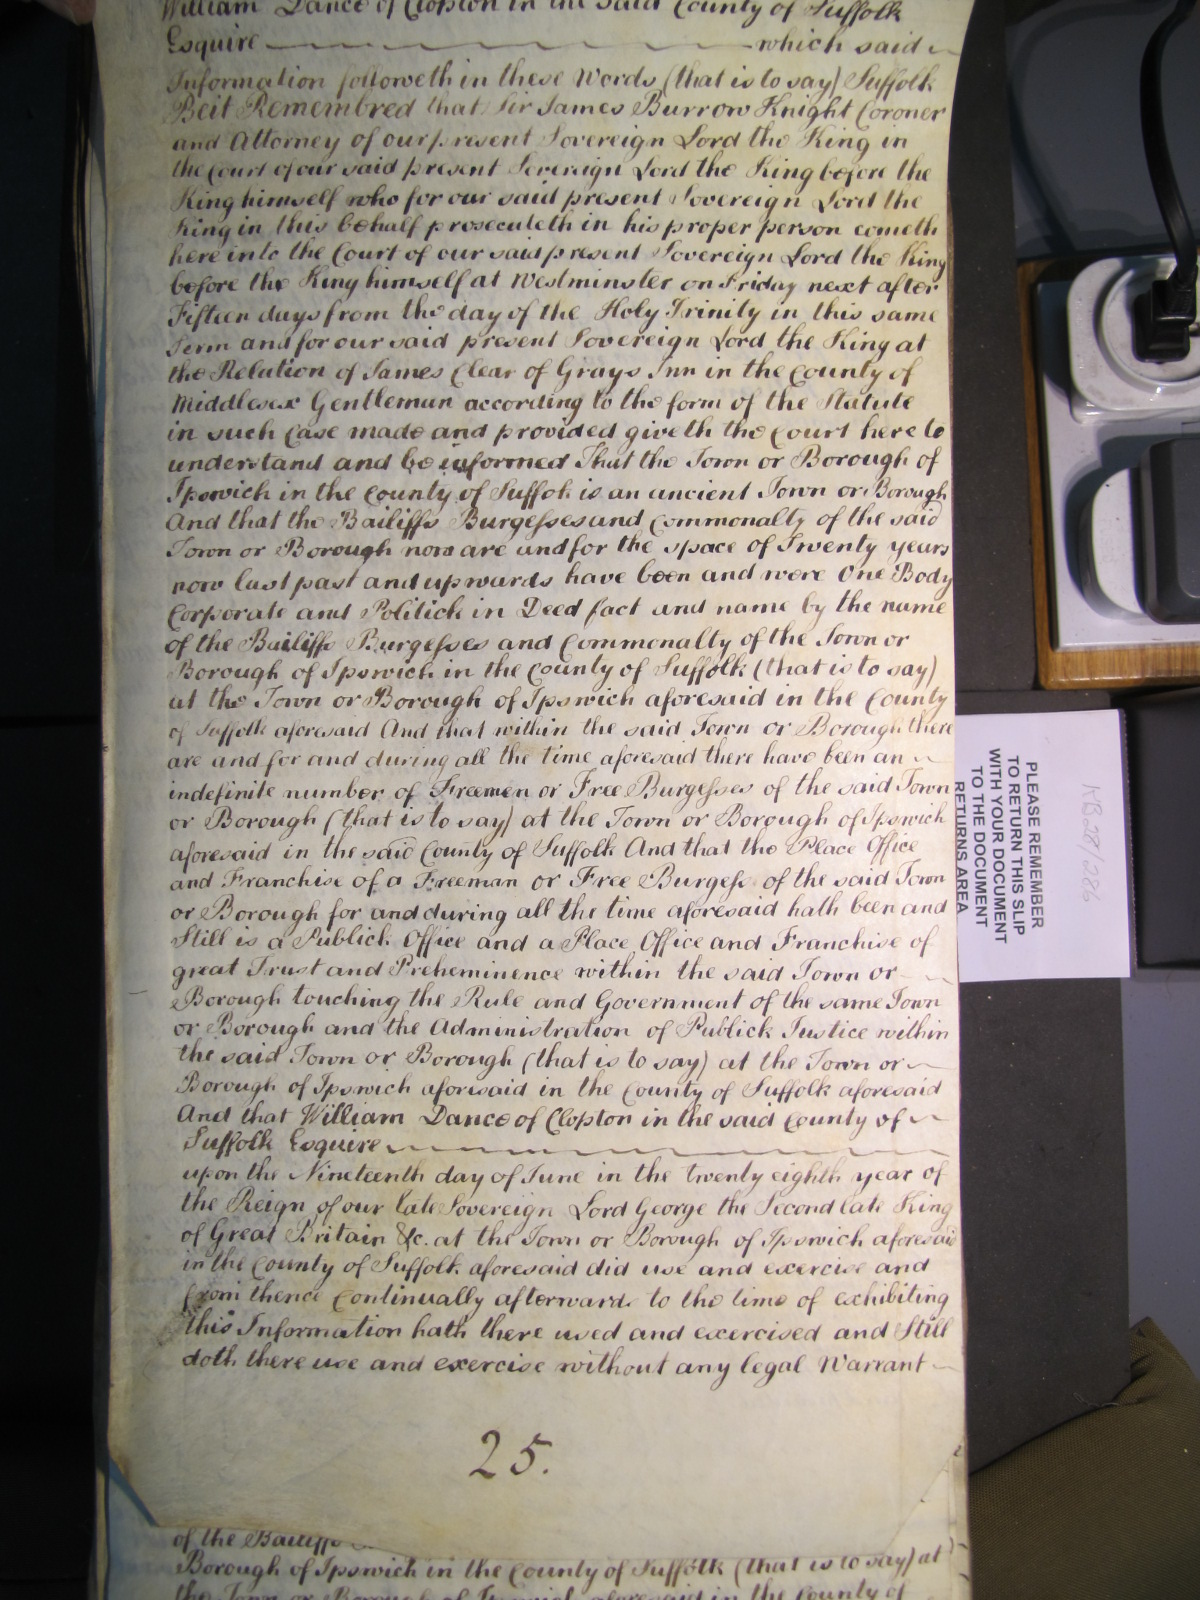 William Dance of Clopton in the said County of Suffolk
Esquire which said
Information followeth in these Words (that is to say) Suffolk
Beit Remembred that Sir James Burrow Knight Coroner
and Attorney of our present Sovereign Lord the King in
the Court of our said present Sovereign Lord the King before the
King himself who for our said present Sovereign Lord the
King in this behalf prosecuteth in his proper person cometh
here into the Court of our said present Sovereign Lord the King
before the King himself at Westminster on Friday next after
Fifteen days from the day of the Holy Trinity in this same
Term and for our said present Sovereign Lord the King at
the Relation of James Clear of Grays Inn in the County of
Middlesex Gentleman according to the form of the Statute
in such Case made and provided giveth the Court here to
understand and be informed That the Town or Borough of
Ipswich in the County of Suffolk is an ancient Town or Borough
And that the Bailiffs Burgesses and Commonalty of the said
Town or Borough now are and for the space of Twenty years
now last past and upwards have been and were One Body
Corporate and Politick in Deed fact and name by the name
of the Bailiffs Burgesses and Commonalty of the Town or
Borough of Ipswich in the County of Suffolk (that is to say)
at the Town or Borough of Ipswich aforesaid in the County
of Suffolk aforesaid And that within the said Town or Borough there
are and for and during all the time aforesaid there have been an
indefinite number of Freemen or Free Burgesses of the said Town
or Borough (that is to say) at the Town or Borough of Ipswich
aforesaid in the said County of Suffolk And that the Place Office
and Franchise of a Freeman or Free Burgess of the said Town
or Borough for and during all the time aforesaid hath been and
Still is a Publick Office and a Place Office and Franchise of
great Trust and Preheminence within the said Town or
Borough touching the Rule and Government of the same Town
or Borough and the Administration of Publick Justice within
the said Town or Borough (that is to say) at the Town or
Borough of Ipswich aforesaid in the County of Suffolk aforesaid
And that William Dance of Clopton in the said County of
Suffolk Esquire
upon the Nineteenth day of June in the twenty eighth year of
the Reign of our late Sovereign Lord George the Second late King
of Great Britain &c. at the Town or Borough of Ipswich aforesaid
in the County of Suffolk aforesaid did use and exercise and
from thence Continually afterwards to the time of exhibiting
this Information hath there used and exercised and Still
doth there use and exercise without any legal Warrant
25.
of the Bailiffs
Borough of Ipswich in the County of Suffolk (that is to say) at
the Town or Borough of Ipswich aforesaid in the County of
PLEASE REMEMBER
TO RETURN THIS SLIP
WITH YOUR DOCUMENT
TO THE DOCUMENT
RETURNS AREA
KB28/286